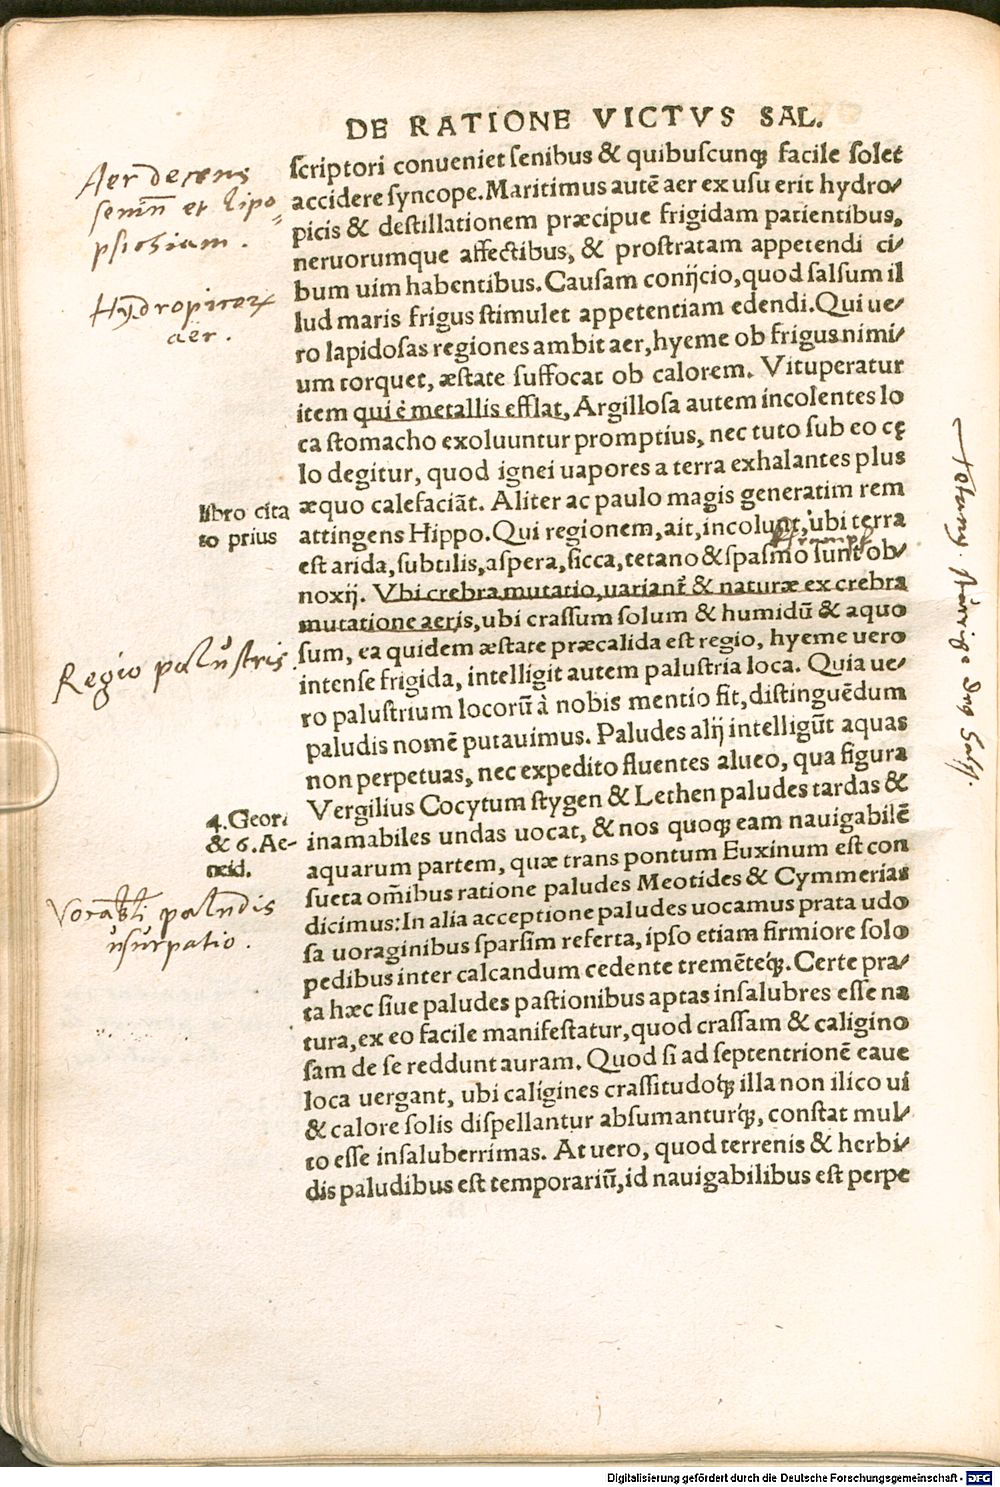 DE RATIONE VICTVS SAL.
scriptori conueniet senibus & quibuscunqꝫ facile solet
accidere syncope. Maritimus autē aer ex usu erit hydro-
picis & destillationem præcipue frigidam patientibus,
neruorumque affectibus, & prostratam appetendi ci-
bum uim habentibus. Causam conijcio, quod salsum il
lud maris frigus stimulet appetentiam edendi. Qui ue-
ro lapidosas regiones ambit aer, hyeme ob frigus nimi-
um torquet, æstate suffocat ob calorem. Vituperatur
item qui è metallis efflat, Argillosa autem incolentes lo
ca stomacho exoluuntur promptius, nec tuto sub eo cę
lo degitur, quod ignei uapores a terra exhalantes plus
æquo calefaciāt. Aliter ac paulo magis generatim rem
attingens Hippo. Qui regionem, ait, incolunt, ubi terra
est arida, subtilis, aspera, sicca, tetano & spasmo sunt ob-
noxij. Vbi crebra mutatio, uariant̃ & naturæ ex crebra
mutatione aeris, ubi crassum solum & humidū & aquo
sum, ea quidem æstate præcalida est regio, hyeme uero
intense frigida, intelligit autem palustria loca. Quia ue-
ro palustrium locorū à nobis mentio fit, distinguēdum
paludis nomē putauimus. Paludes alij intelligūt aquas
non perpetuas, nec expedito fluentes alueo, qua figura
Vergilius Cocytum stygen & Lethen paludes tardas &
inamabiles undas uocat, & nos quoqꝫ eam nauigabilē
aquarum partem, quæ trans pontum Euxinum est con
sueta om̄ibus ratione paludes Meotides & Cymmerias
dicimus: In alia acceptione paludes uocamus prata udo
sa uoraginibus sparsim referta, ipso etiam firmiore solo
pedibus inter calcandum cedente tremēteqꝫ. Certe pra-
ta hæc siue paludes pastionibus aptas insalubres esse na
tura, ex eo facile manifestatur, quod crassam & caligino
sam de se reddunt auram. Quod si ad septentrionē eaue
loca uergant, ubi caligines crassitudoqꝫ illa non ilico ui
& calore solis dispellantur absumanturqꝫ, constat mul-
to esse insaluberrimas. At uero, quod terrenis & herbi-
dis paludibus est temporariū, id nauigabilibus est perpe
Aer decens
senin̄ et lipo=
psichiam.
Hydropicor
aër.
libro cita
to prius
Regio palustris.
4. Geor.
& 6. Ae-
neid.
Vocabli paludis
usurpatio.
Digitalisierung gefördert durch die Deutsche Forschungsgemeinschaft - DFG